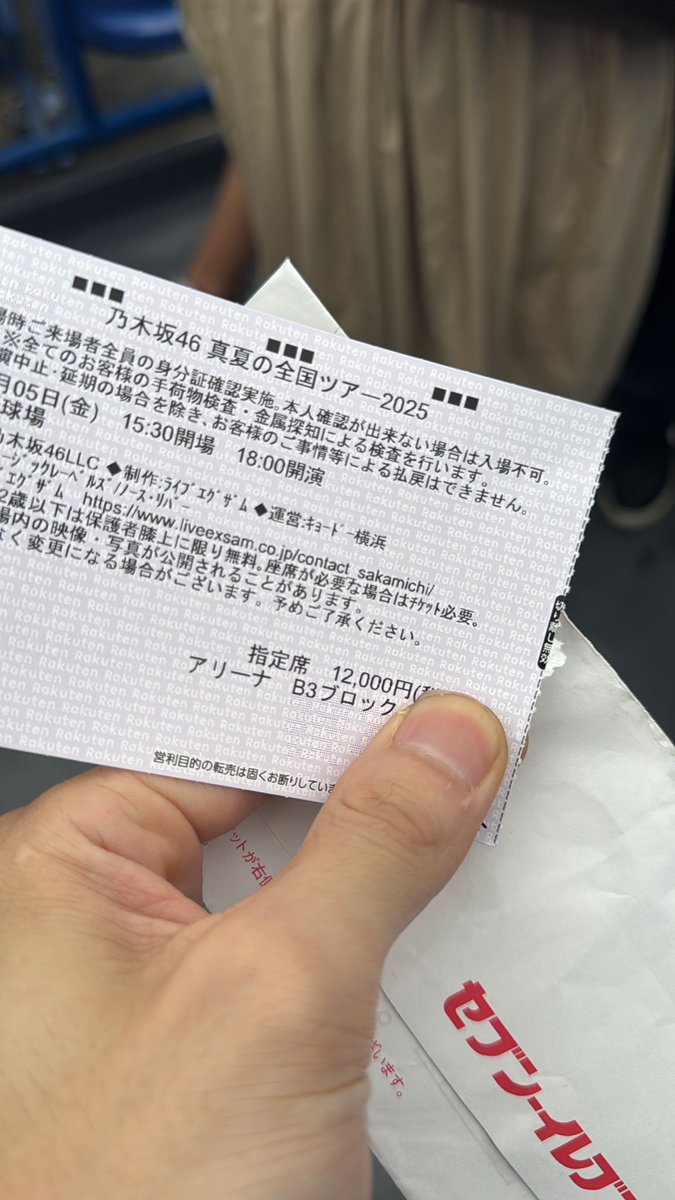 乃木坂46 真夏の全国ツアー2025
場時ご来場者全員の身分証確認実施。本人確認が出来ない場合は入場不可。
※全てのお客様の手荷物検査・金属探知による検査を行います。
演中止・延期の場合を除き、お客様のご事情等による払戻はできません。
月05日(金) 15:30開場 18:00開演
球場
乃木坂46LLC ◆制作:ライブエグザム ◆運営:キョードー横浜
エグザム https://www.liveexsam.co.jp/contact_sakamichi/
2歳以下は保護者膝上に限り無料。座席が必要な場合はチケット必要。
場内の映像・写真が公開されることがあります。
なく変更になる場合がございます。予めご了承ください。
指定席 12,000円(税
アリーナ B3ブロック
営利目的の転売は固くお断りしていま
切り離し無効
Rakuten
ットが右
ざいます。
セブン-イレブ